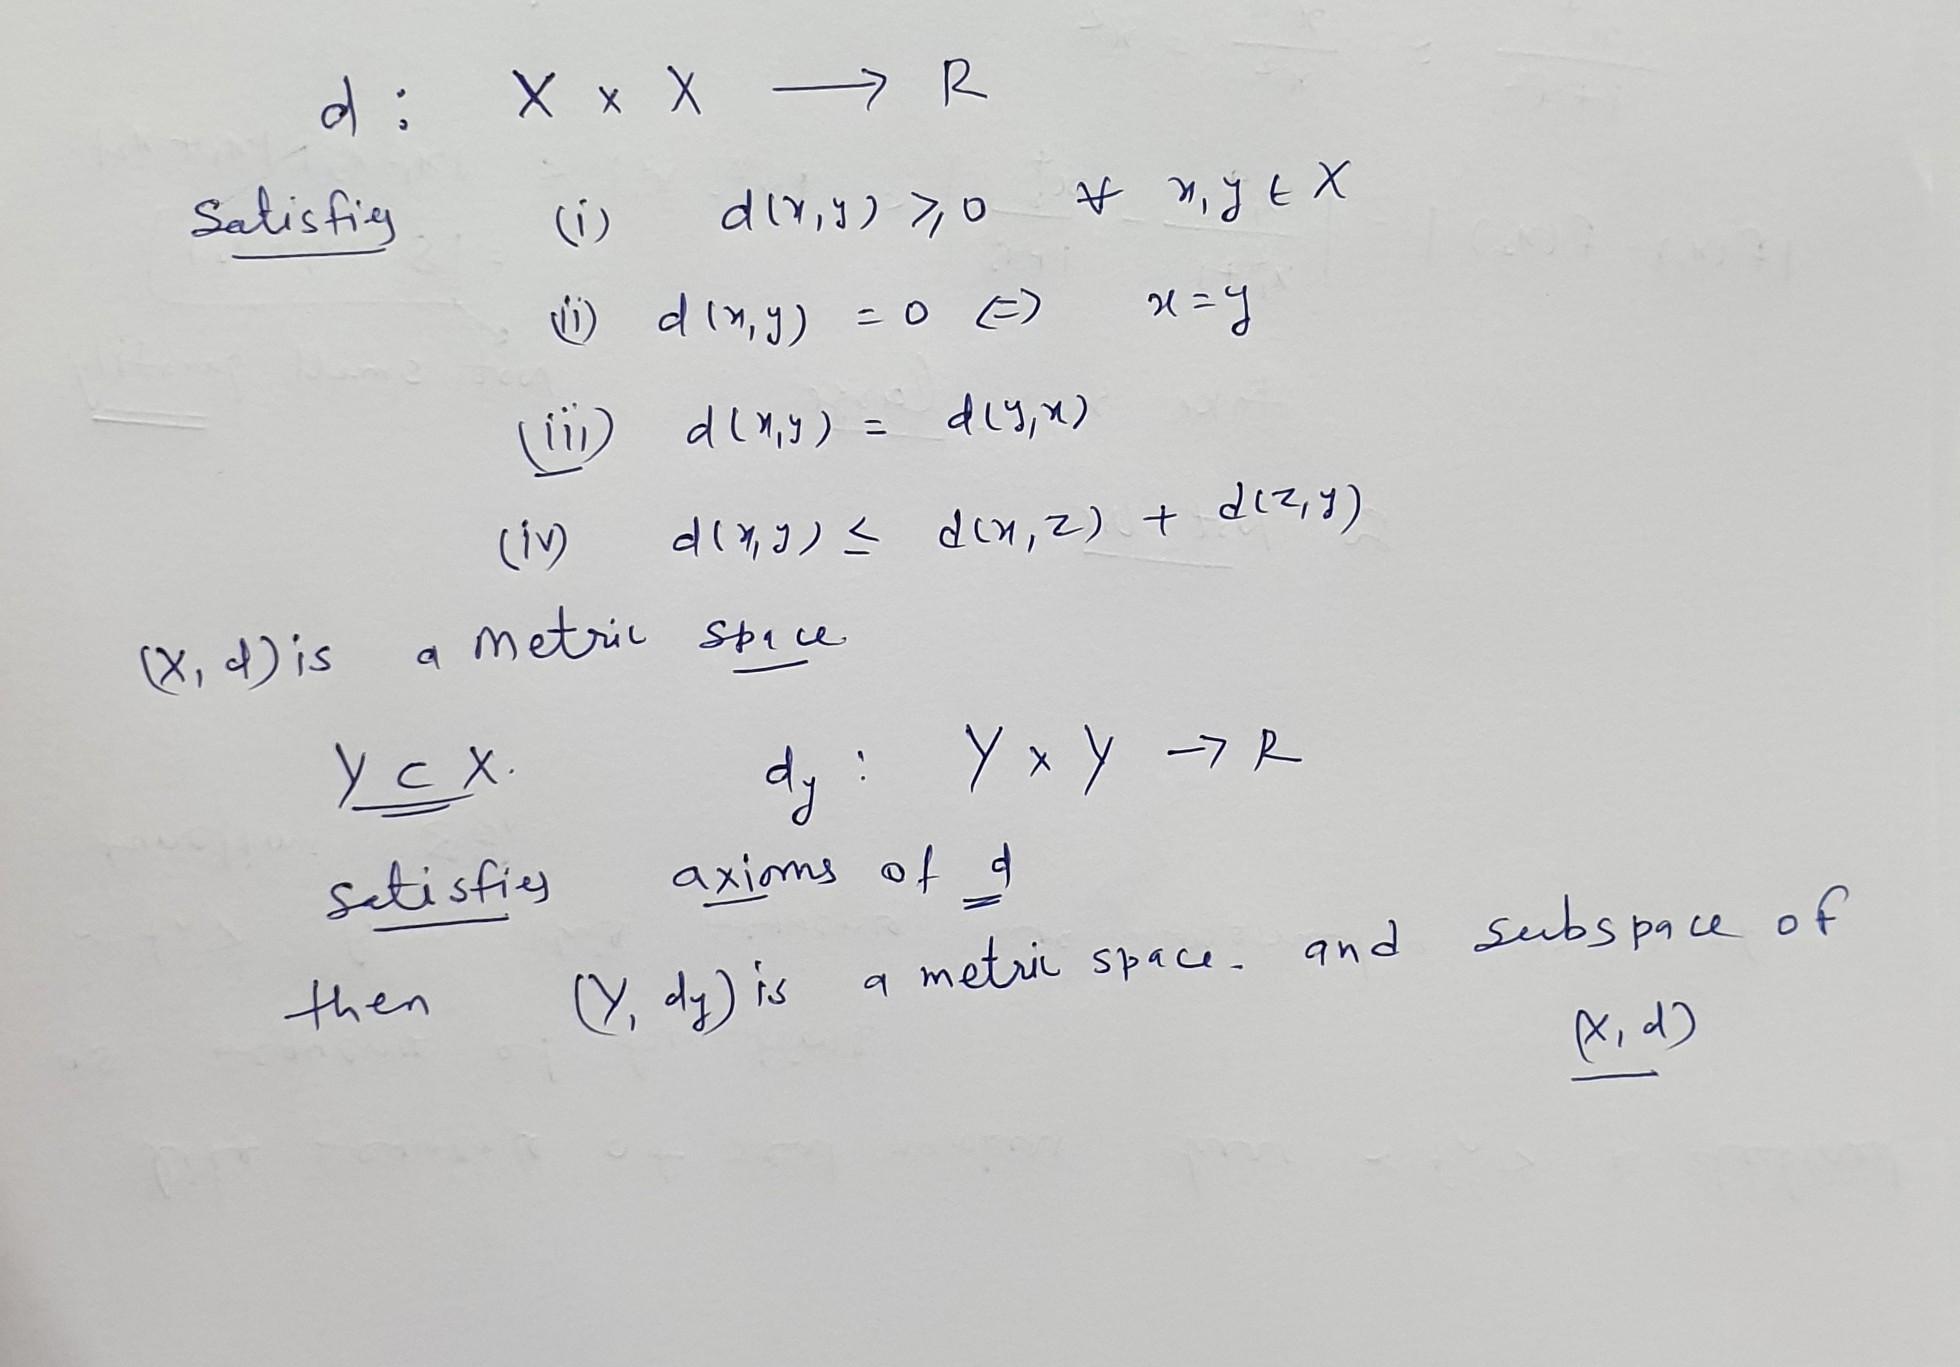 d : X × X ⟶ R
Satisfies (i) d(x,y) ≥ 0 ∀ x, y ∈ X
(ii) d(x,y) = 0 ⇔ x = y
(iii) d(x,y) = d(y,x)
(iv) d(x,y) ≤ d(x,z) + d(z,y)
(X, d) is a metric space
Y ⊂ X. dy : Y × Y → R
satisfies axioms of d
then (Y, dy) is a metric space. and subspace of
(X, d)